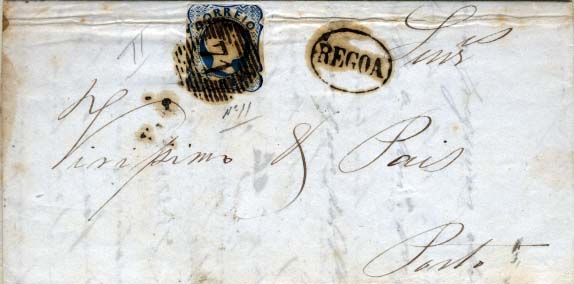 CORREIO
REGOA
Snrs
Nº 11
Virissimo & Pais
Porto